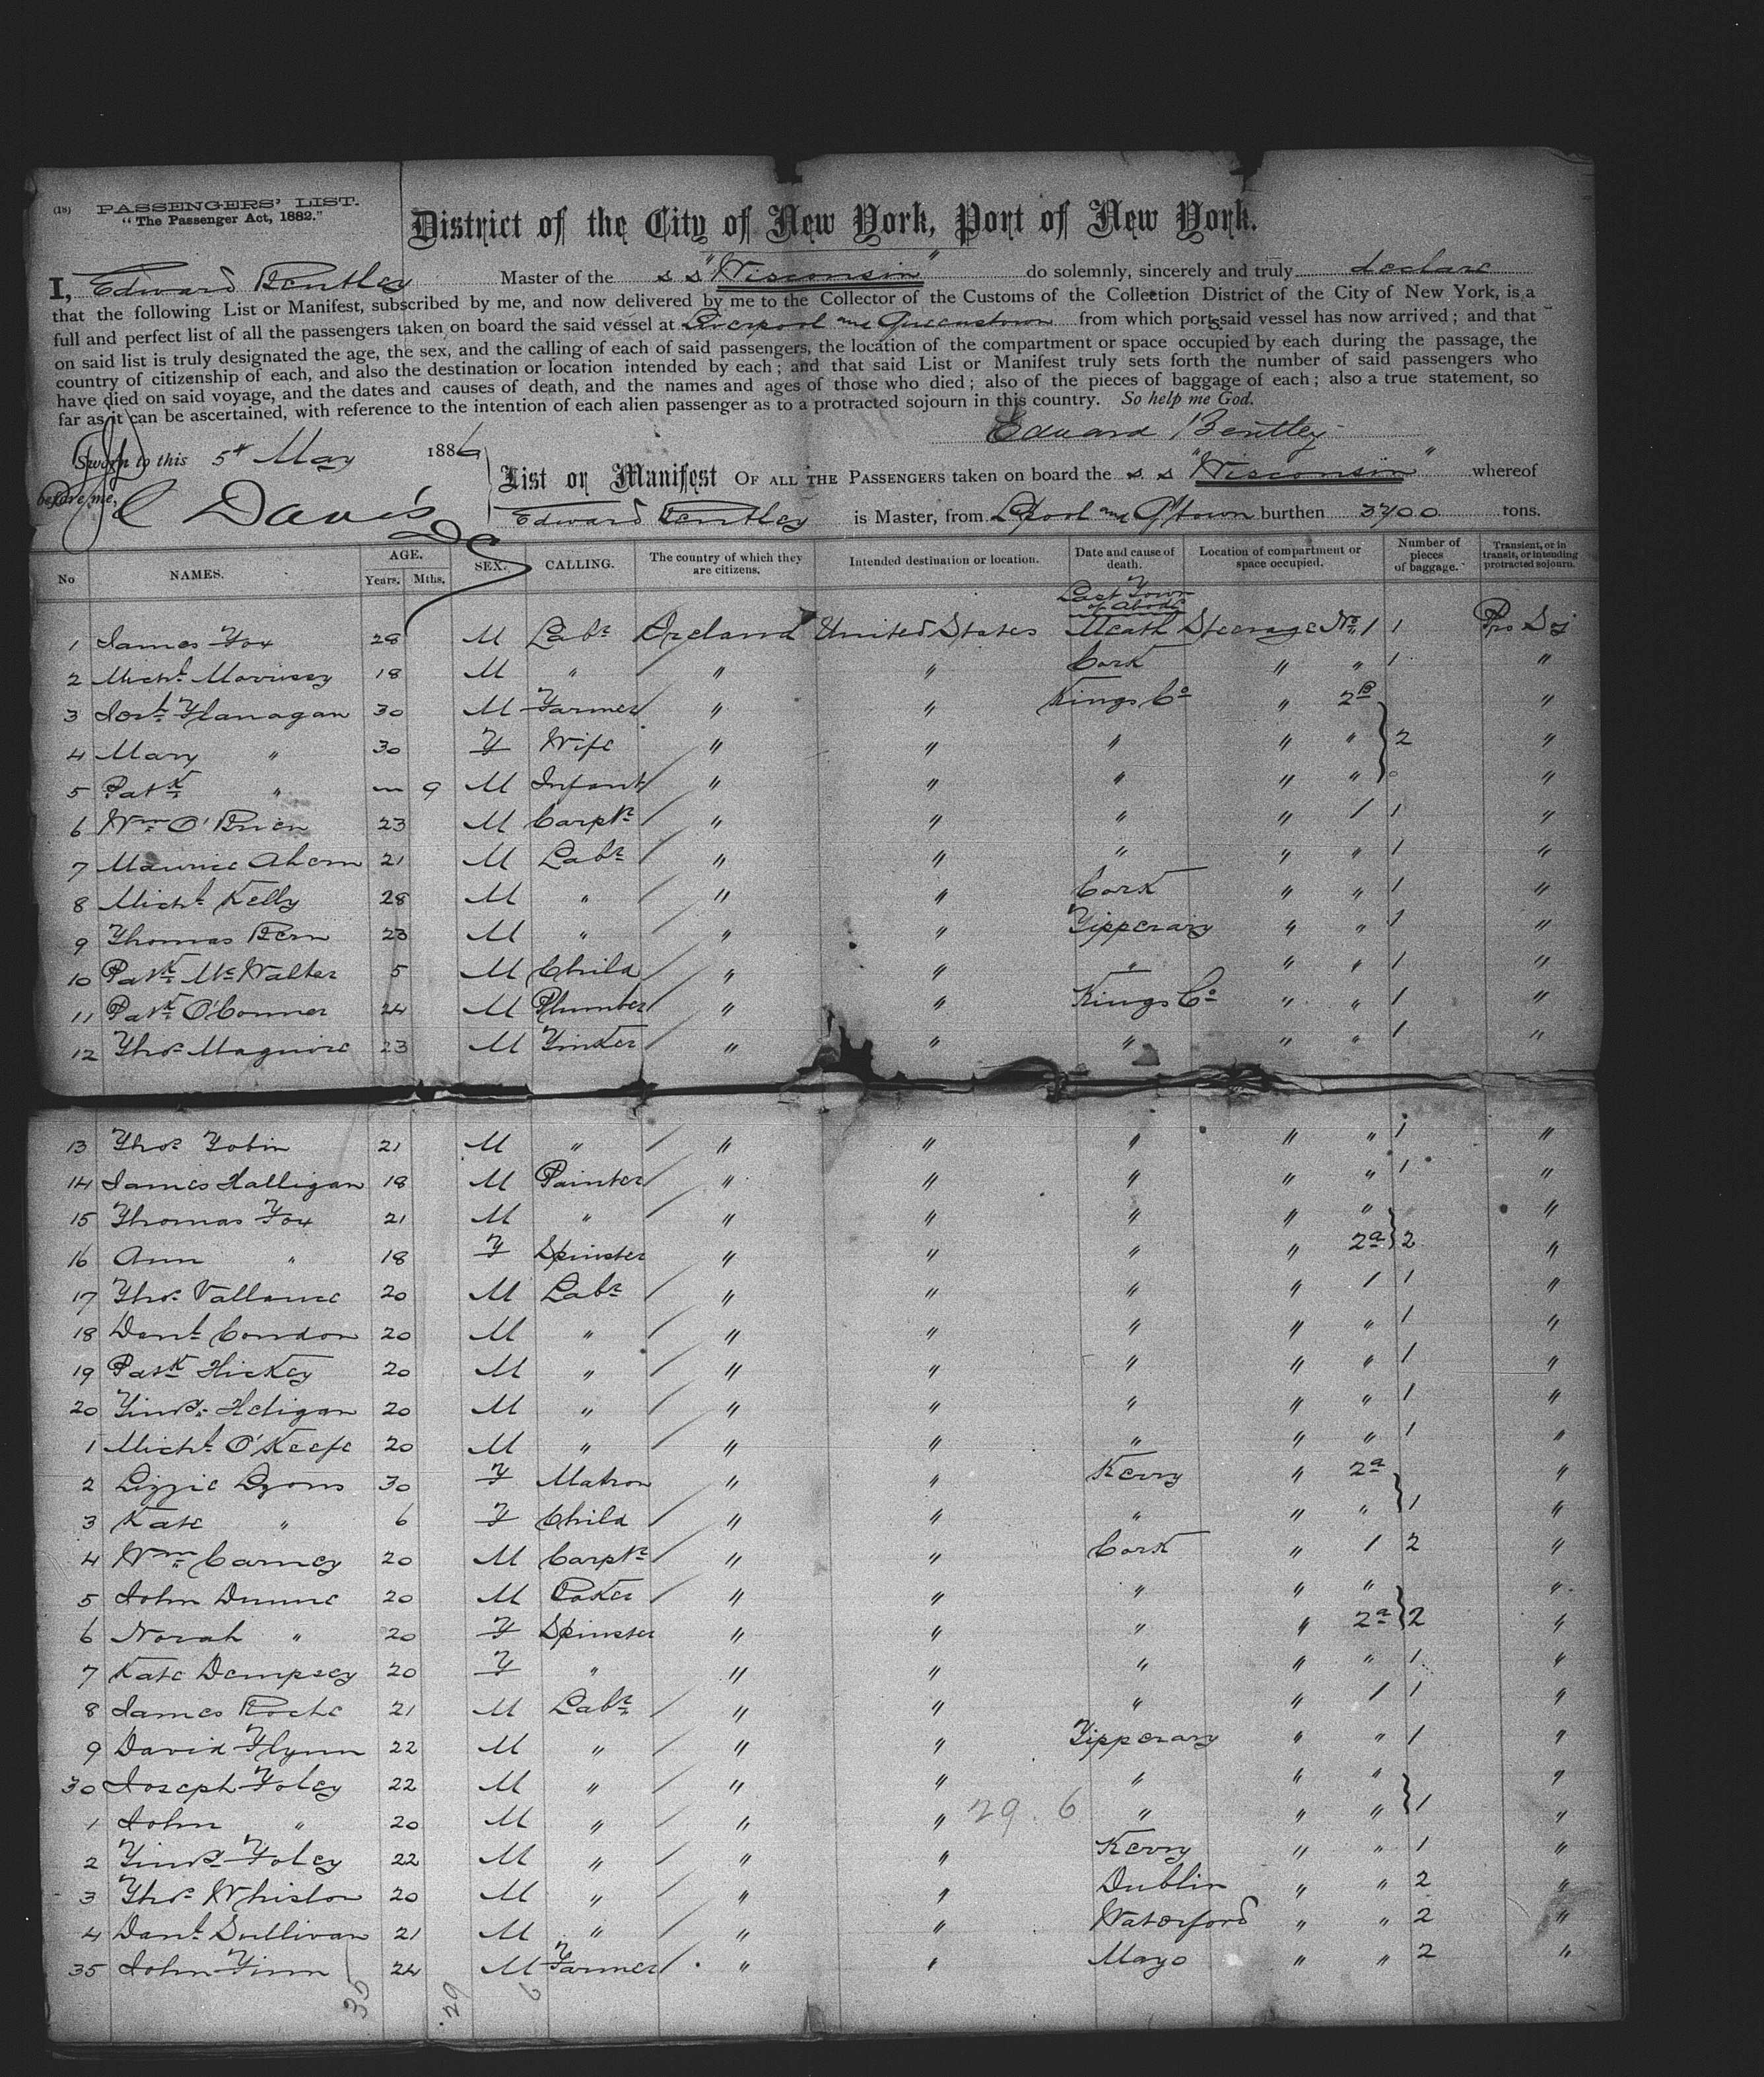 (18) PASSENGERS' LIST.
"The Passenger Act, 1882."
District of the City of New York, Port of New York.
I, Edward Bentley Master of the s s "Wisconsin" do solemnly, sincerely and truly declare
that the following List or Manifest, subscribed by me, and now delivered by me to the Collector of the Customs of the Collection District of the City of New York, is a
full and perfect list of all the passengers taken on board the said vessel at Liverpool and Queenstown from which ports said vessel has now arrived; and that
on said list is truly designated the age, the sex, and the calling of each of said passengers, the location of the compartment or space occupied by each during the passage, the
country of citizenship of each, and also the destination or location intended by each; and that said List or Manifest truly sets forth the number of said passengers who
have died on said voyage, and the dates and causes of death, and the names and ages of those who died; also of the pieces of baggage of each; also a true statement, so
far as it can be ascertained, with reference to the intention of each alien passenger as to a protracted sojourn in this country. So help me God.
Edward Bentley
Sworn to this 5th May 1886
before me, C Davis
List or Manifest OF ALL THE PASSENGERS taken on board the s s "Wisconsin" whereof
Edward Bentley is Master, from L'pool and Q'town burthen 3700 tons.
No NAMES. AGE. Years. Mths. SEX. CALLING. The country of which they are citizens. Intended destination or location. Date and cause of death. Location of compartment or space occupied. Number of pieces of baggage. Transient, or in transit, or intending protracted sojourn.
Last Town of Abode
1 James Fox 28 M Labr Ireland United States Meath Steerage No 1 1 Pro Soj
2 Michl Morrissy 18 M " " " Cork " " 1 "
3 Jos Flanagan 30 M Farmer " " Kings Co " 2B "
4 Mary " 30 F Wife " " " " " 2 "
5 Patk " — 9 M Infant " " " " " "
6 Wm O'Brien 23 M Carptr " " " " 1 1 "
7 Maurice Ahern 21 M Labr " " " " " 1 "
8 Michl Kelly 28 M " " " Cork " " 1 "
9 Thomas Bern 23 M " " " Tipperary " " 1 "
10 Patk McWalter 5 M Child " " " " " 1 "
11 Patk O'Conner 24 M Plumber " " Kings Co " " 1 "
12 Thos Maguire 23 M Tinker " " " " " 1 "
13 Thos Tobin 21 M " " " " " " 1 "
14 James Halligan 18 M Painter " " " " " 1 "
15 Thomas Fox 21 M " " " " " " "
16 Ann " 18 F Spinster " " " " 2a 2 "
17 Thos Vallance 20 M Labr " " " " 1 1 "
18 Danl Condon 20 M " " " " " " 1 "
19 Patk Hickey 20 M " " " " " " 1 "
20 Timy Hetigan 20 M " " " " " " 1 "
1 Michl O'Keefe 20 M " " " " " " 1 "
2 Lizzie Lyons 30 F Matron " " Kerry " 2a "
3 Kate " 6 F Child " " " " " 1 "
4 Wm Carney 20 M Carptr " " Cork " 1 2 "
5 John Dunne 20 M Baker " " " " " "
6 Norah " 20 F Spinster " " " " 2a 2 "
7 Kate Dempsey 20 F " " " " " " 1 "
8 James Roche 21 M Labr " " " " 1 1 "
9 David Flynn 22 M " " " Tipperary " " 1 "
30 Joseph Foley 22 M " " " " " " "
1 John " 20 M " " " 29. 6 " " " 1 "
2 Timy Foley 22 M " " " Kerry " " 1 "
3 Thos Whiston 20 M " " " Dublin " " 2 "
4 Danl Sullivan 21 M " " " Waterford " " 2 "
35 John Finn 24 M Farmer " " Mayo " " 2 "
35 29 6